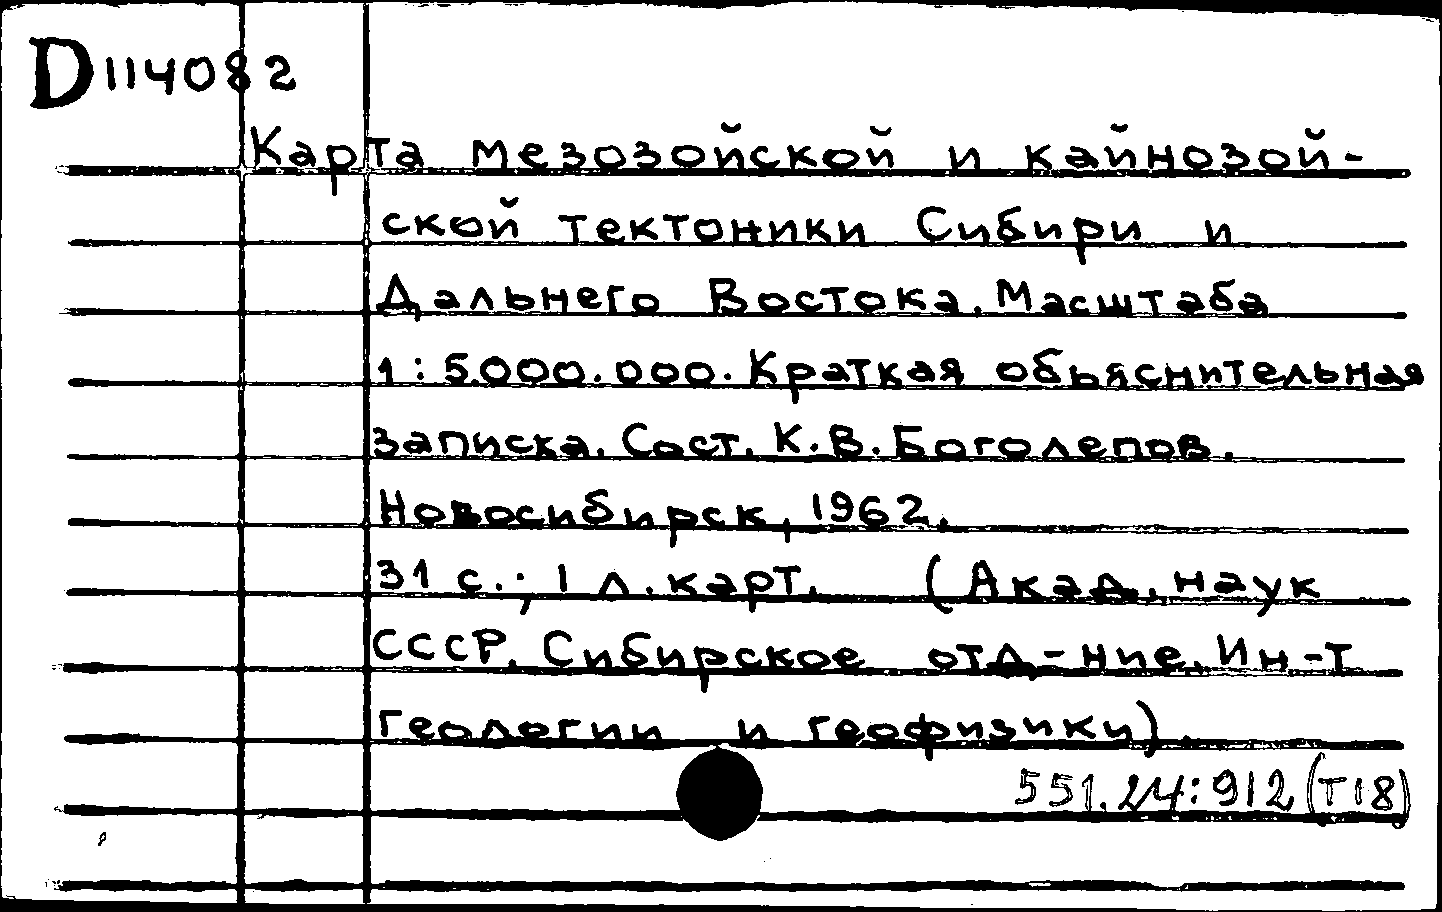 D114082
Карта мезозойской и кайнозой-
ской тектоники Сибири и
Дальнего Востока. Масштаба
1:5.000.000. Краткая объяснительная
записка. Сост. К.В. Боголепов.
Новосибирск, 1962.
31 с.; 1 л. карт. (Акад. наук
СССР. Сибирское отд-ние. Ин-т
геологии и геофизики).
551.24:912(Т18)